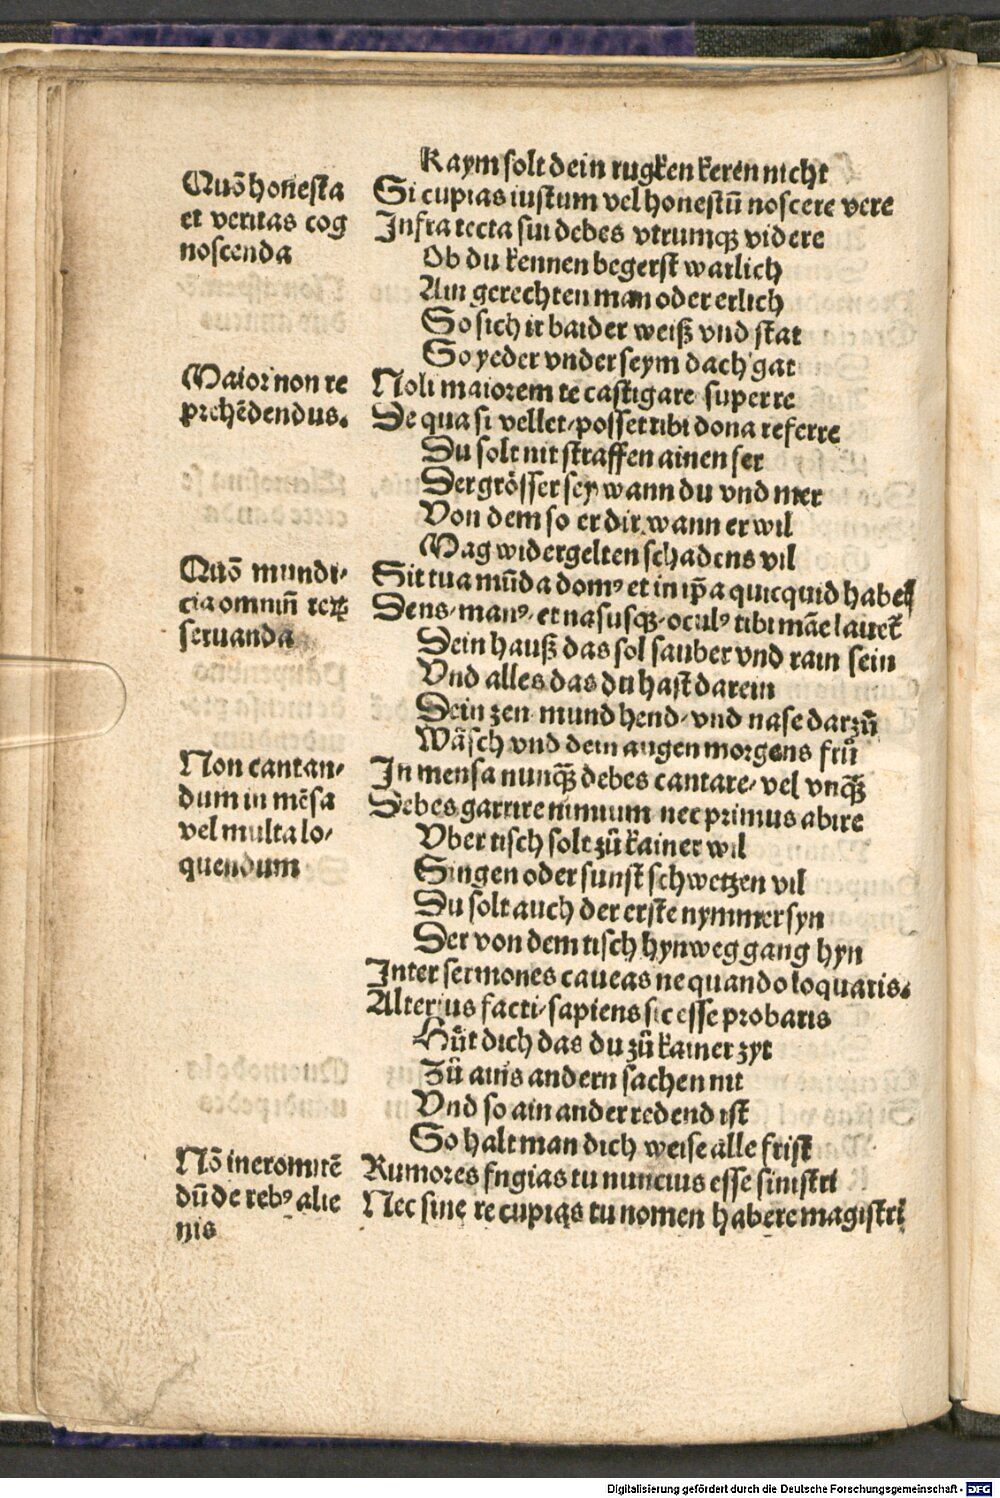 Kaym solt dein rugken keren nicht
Quō honesta
et veritas cog
noscenda
Si cupias iustum vel honestū noscere vere
Infra tecta sui debes vtrumqꝫ videre
Ob du kennen begerst warlich
Ain gerechten man oder erlich
So sich ir baider weiß vnd stat
So yeder vnder seym dach gat
Maior non re
prehēdendus.
Noli maiorem te castigare super re
De qua si vellet/ posset tibi dona referre
Du solt nit straffen ainen ser
Der grösser sey wann du vnd mer
Von dem so er dir wann er wil
Mag widergelten schadens vil
Quō mundi/
cia omniū reꝝ
seruanda
Sit tua mūda domꝰ et in ip̄a quicquid habes
Dens/ manꝰ/ et nasusqꝫ/ oculꝰ tibi māe lauet̄
Dein hauß das sol sauber vnd rain sein
Vnd alles das du hast darein
Dein zen mund hend/ vnd nase darzů
Wäsch vnd dein augen morgens frů
Non cantan/
dum in mēsa
vel multa lo/
quendum
In mensa nunqꝫ̄ debes cantare/ vel vnqꝫ̄
Debes garrire nimium nec primus abire
Vber tisch solt zů kainer wil
Singen oder sunst schwetzen vil
Du solt auch der erste nymmer syn
Der von dem tisch hynweg gang hyn
Inter sermones caueas ne quando loquaris.
Alterius facti/ sapiens sic esse probaris
Hůt dich das du zů kainer zyt
Zů ains andern sachen nit
Vnd so ain ander redend ist
So halt man dich weise alle frist
Nō ineromitē
dū de rebꝰ alie
nis
Rumores fngias tu nuncius esse sinistri
Nec sine re cupias tu nomen habere magistri
Digitalisierung gefördert durch die Deutsche Forschungsgemeinschaft - DFG